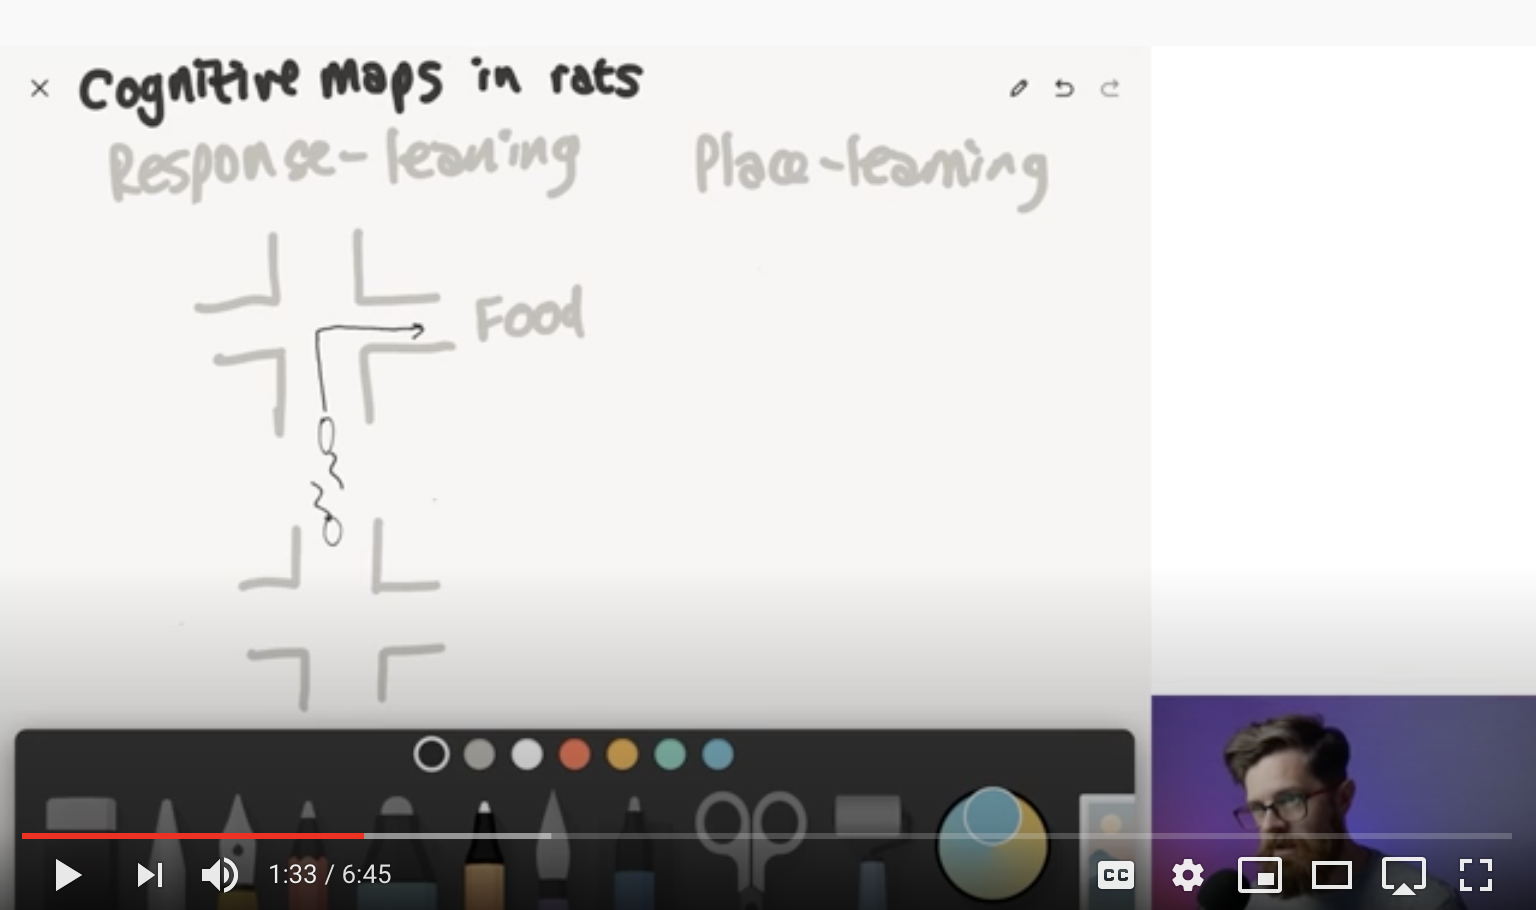 Cognitive maps in rats
Response-learning Place-learning
Food
1:33 / 6:45
CC